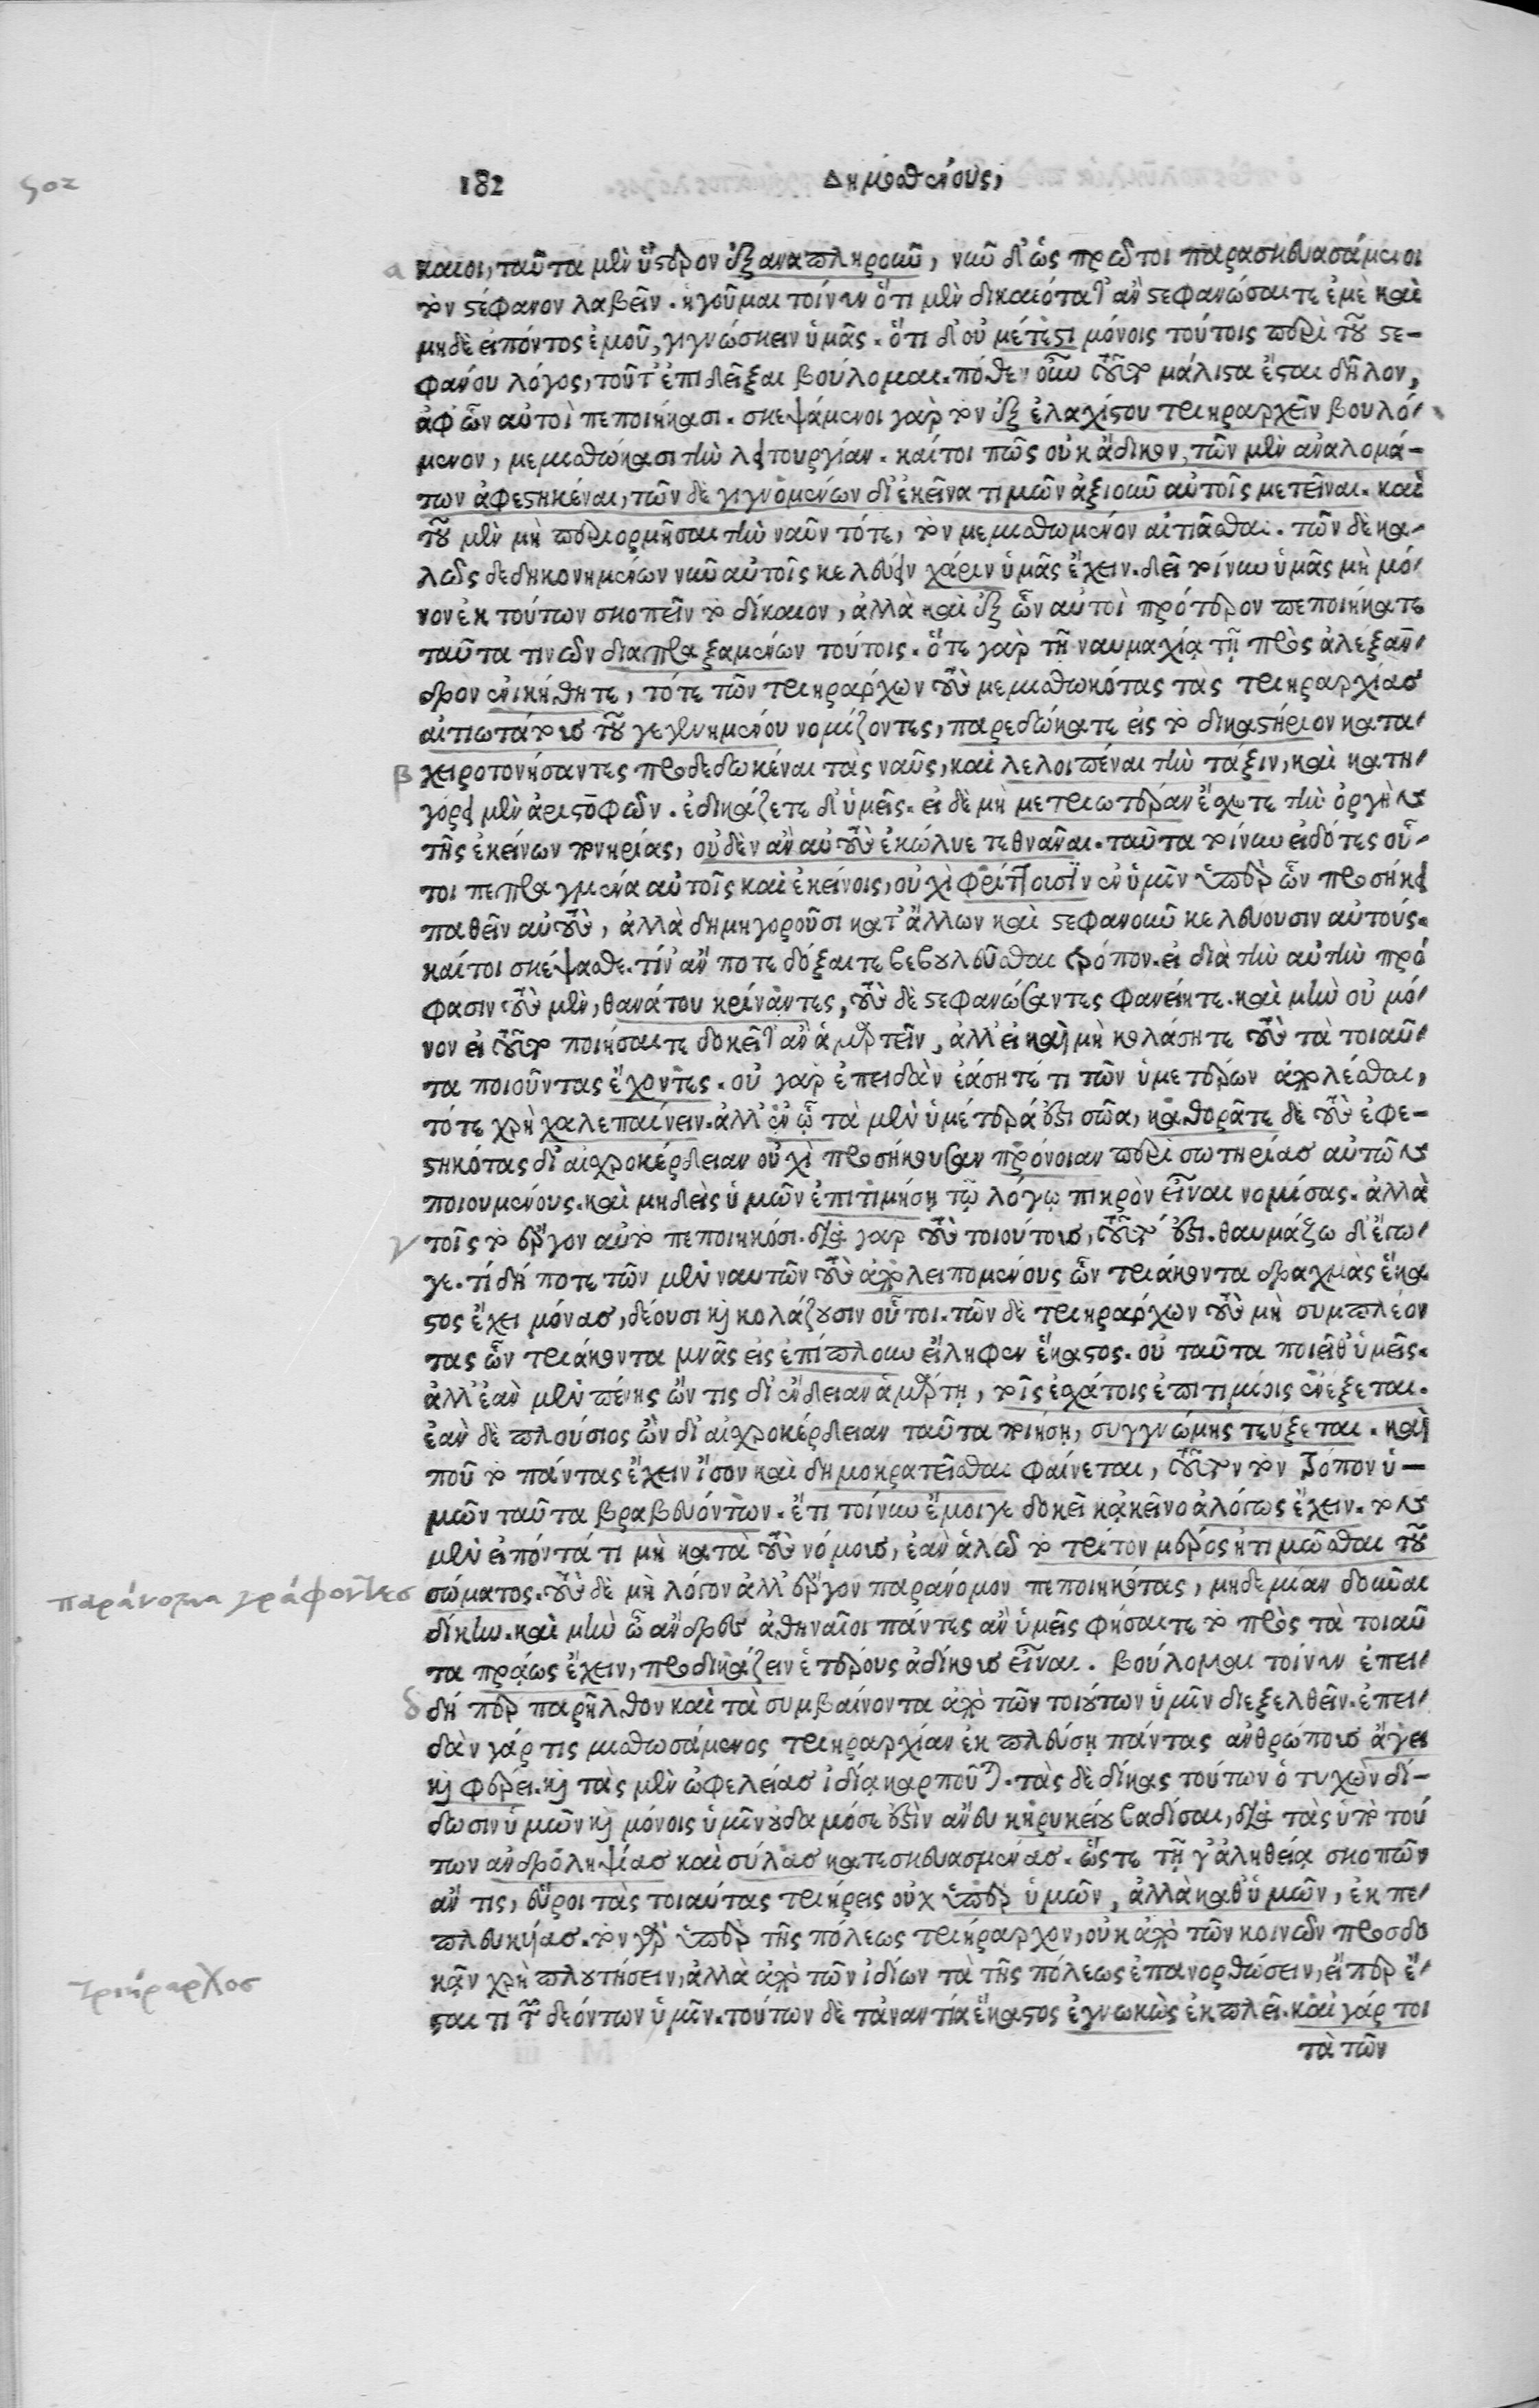 502
182 Δημοσθένους,
α καιοι, ταῦτα μὲν ὕστερον ἐξαναπληροῦν, νῦν δ' ὡς πρῶτοι παρασκευασάμενοι
τὸν στέφανον λαβεῖν. ἡγοῦμαι τοίνυν ὅτι μὲν δικαιότατ' ἂν στεφανώσαιτε ἐμὲ καὶ
μηδὲ εἰπόντος ἐμοῦ, γιγνώσκειν ὑμᾶς. ὅτι δ' οὐ μέτεστι μόνοις τούτοις περὶ τοῦ στε-
φάνου λόγος, τοῦτ' ἐπιδεῖξαι βούλομαι. πόθεν οὖν τοῦτο μάλιστα ἔσται δῆλον,
ἀφ' ὧν αὐτοὶ πεποιήκασι. σκεψάμενοι γὰρ τὸν ἐξ ἐλαχίστου τριηραρχεῖν βουλό-
μενον, μεμισθώκασι τὴν λειτουργίαν. καίτοι πῶς οὐκ ἄδικον, τῶν μὲν ἀναλομά-
των ἀφεστηκέναι, τῶν δὲ γιγνομένων δι' ἐκεῖνα τιμῶν ἀξιοῦν αὐτοῖς μετεῖναι. καὶ
τοῦ μὲν μὴ περιορμῆσαι τὴν ναῦν τότε, τὸν μεμισθωμένον αἰτιᾶσθαι. τῶν δὲ κα-
λῶς δεδηκονημένων νῦν αὐτοῖς κελεύειν χάριν ὑμᾶς ἔχειν. δεῖ τοίνυν ὑμᾶς μὴ μό-
νον ἐκ τούτων σκοπεῖν τὸ δίκαιον, ἀλλὰ καὶ ἐξ ὧν αὐτοὶ πρότερον πεποιήκατε
ταῦτα τινῶν διαπραξαμένων τούτοις. ὅτε γὰρ τῇ ναυμαχίᾳ τῇ πρὸς ἀλέξαν-
δρον ἐνικήθητε, τότε τῶν τριηράρχων τοὺς μεμισθωκότας τὰς τριηραρχίας
αἰτιωτάτους τοῦ γεγενημένου νομίζοντες, παρεδώκατε εἰς τὸ δικαστήριον κατα-
β χειροτονήσαντες προδεδωκέναι τὰς ναῦς, καὶ λελοιπέναι τὴν τάξιν, καὶ κατη-
γόρει μὲν ἀριστοφῶν. ἐδικάζετε δ' ὑμεῖς. εἰ δὲ μὴ μετριωτέραν ἔσχετε τὴν ὀργὴν
τῆς ἐκείνων πονηρίας, οὐδὲν ἂν αὐτοὺς ἐκώλυε τεθνᾶναι. ταῦτα τοίνυν εἰδότες οὗ-
τοι πεπραγμένα αὑτοῖς καὶ ἐκείνοις, οὐχὶ φρίττουσιν ἐν ὑμῖν ὑπὲρ ὧν προσήκει
παθεῖν αὐτοὺς, ἀλλὰ δημηγοροῦσι κατ' ἄλλων καὶ στεφανοῦν κελεύουσιν αὑτούς.
καίτοι σκέψασθε. τίν' ἄν ποτε δόξαιτε βεβουλεῦσθαι τρόπον. εἰ διὰ τὴν αὐτὴν πρό
φασιν τοὺς μὲν, θανάτου κρίναντες, τοὺς δὲ στεφανώσαντες φανείητε. καὶ μὴν οὐ μό-
νον εἰ τοῦτο ποιήσαιτε δοκεῖτ' ἂν ἁμαρτεῖν, ἀλλ' εἰ καὶ μὴ κολάσητε τοὺς τὰ τοιαῦ-
τα ποιοῦντας ἔχοντες. οὐ γὰρ ἐπειδὰν ἐάσητέ τι τῶν ὑμετέρων ἀπολέσθαι,
τότε χρὴ χαλεπαίνειν. ἀλλ' ἐν ᾧ τὰ μὲν ὑμέτερά ἐστι σῶα, καθορᾶτε δὲ τοὺς ἐφε-
στηκότας δι' αἰσχροκέρδειαν οὐχὶ προσήκουσαν πρόνοιαν περὶ σωτηρίας αὐτῶν
ποιουμένους. καὶ μηδεὶς ὑμῶν ἐπιτιμήσῃ τῷ λόγῳ πικρὸν εἶναι νομίσας. ἀλλὰ
γ τοῖς τὸ ἔργον αὐτὸ πεποιηκόσι. διὰ γὰρ τοὺς τοιούτους, τοῦτό ἐστι. θαυμάζω δ' ἔγω-
γε. τί δή ποτε τῶν μὲν ναυτῶν τοὺς ἀπολειπομένους ὧν τριάκοντα δραχμὰς ἕκα
στος ἔχει μόνας, δέουσι καὶ κολάζουσιν οὗτοι. τῶν δὲ τριηράρχων τοὺς μὴ συμπλέον
τας ὧν τριάκοντα μνᾶς εἰς ἐπίπλουν εἴληφεν ἕκαστος. οὐ ταῦτα ποιεῖθ' ὑμεῖς.
ἀλλ' ἐὰν μὲν πένης ὤν τις δι' ἔνδειαν ἁμάρτῃ, τοῖς ἐσχάτοις ἐπιτιμίοις ἐνέξεται.
ἐὰν δὲ πλούσιος ὢν δι' αἰσχροκέρδειαν ταῦτα ποιήσῃ, συγγνώμης τεύξεται. καὶ
ποῦ τὸ πάντας ἔχειν ἴσον καὶ δημοκρατεῖσθαι φαίνεται, τοῦτον τὸν τρόπον ὑ-
μῶν ταῦτα βραβευόντων. ἔτι τοίνυν ἔμοιγε δοκεῖ κἀκεῖνο ἀλόγως ἔχειν. τὸν
μὲν εἰπόντά τι μὴ κατὰ τοὺς νόμους, ἐὰν ἁλῷ τὸ τρίτον μέρος ἠτιμῶσθαι τοῦ
παράνομα γράφοντες σώματος. τοὺς δὲ μὴ λόγον ἀλλ' ἔργον παράνομον πεποιηκότας, μηδεμίαν δοῦναι
δίκην. καὶ μὴν ὦ ἄνδρες ἀθηναῖοι πάντες ἂν ὑμεῖς φήσαιτε τὸ πρὸς τὰ τοιαῦ
τα πράως ἔχειν, προδικάζειν ἑτέρους ἀδίκους εἶναι. βούλομαι τοίνυν ἐπει-
δ δή περ παρῆλθον καὶ τὰ συμβαίνοντα ἀπὸ τῶν τοιούτων ὑμῖν διεξελθεῖν. ἐπει-
δὰν γάρ τις μισθωσάμενος τριηραρχίαν ἐκπλεύσῃ πάντας ἀνθρώπους ἄγει
καὶ φέρει. καὶ τὰς μὲν ὠφελείας ἰδίᾳ καρποῦται. τὰς δὲ δίκας τούτων ὁ τυχὼν δί-
δωσιν ὑμῶν καὶ μόνοις ὑμῖν οὐδαμόσε ἐστὶν ἄνευ κηρυκείου βαδίσαι, διὰ τὰς ὑπὸ τού
των ἀνδροληψίας καὶ σύλας κατεσκευασμένας. ὥστε τῇ γ' ἀληθείᾳ σκοπῶν
ἄν τις, εὕροι τὰς τοιαύτας τριήρεις οὐχ ὑπὲρ ὑμῶν, ἀλλὰ καθ' ὑμῶν, ἐκπε-
πλευκυίας. τὸν γὰρ ὑπὲρ τῆς πόλεως τριήραρχον, οὐκ ἀπὸ τῶν κοινῶν προσδο
τριήραρχος κᾶν χρὴ πλουτήσειν, ἀλλὰ ἀπὸ τῶν ἰδίων τὰ τῆς πόλεως ἐπανορθώσειν, εἴπερ ἔ-
σται τι τῶν δεόντων ὑμῖν. τούτων δὲ τἀναντία ἕκαστος ἐγνωκὼς ἐκπλεῖ. καὶ γάρ τοι
τὰ τῶν